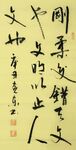 剛柔交錯天文
也文明以止人
文也